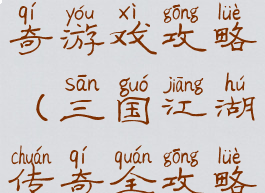 qí yóu xì gōng lüè
奇游戏攻略
sān guó jiāng hú
（三国江湖
chuán qí quán gōng lüè
传奇全攻略